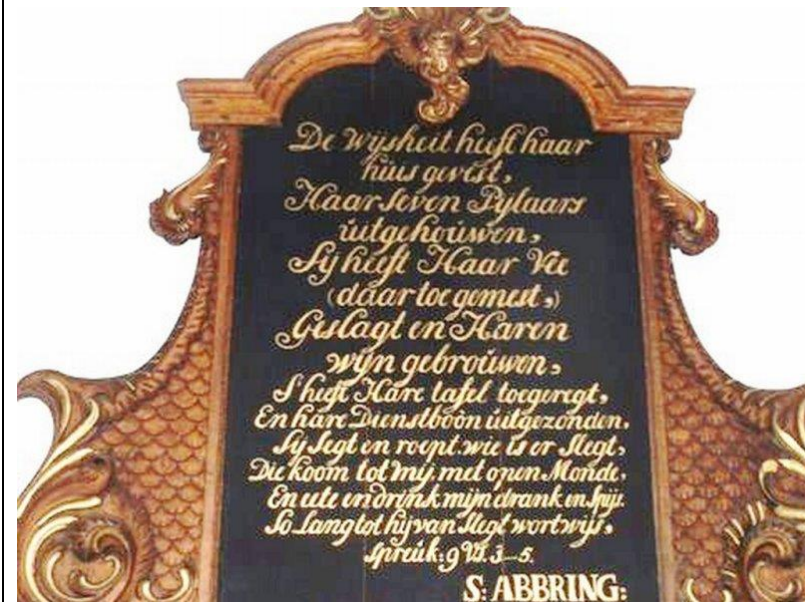 De wijsheit hieft haar
hüus gevest,
Haar seven Pylaars
üitgehoüwen,
Sij heeft Haar Vee
(daar toe gemest,)
Geslagt en Haren
wijn gebroüwen,
S'heeft Hare tafel toegeregt,
En hare Dienstboôn üitgezonden,
Sij segt en roept: wie is er slegt,
Die koom tot mij, met open Monde,
En ete en drink mijn drank en spijs.
So Lang tot hij van slegt wort wijs,
spreük: 9 Vs. 3-5.
S: ABBRING: